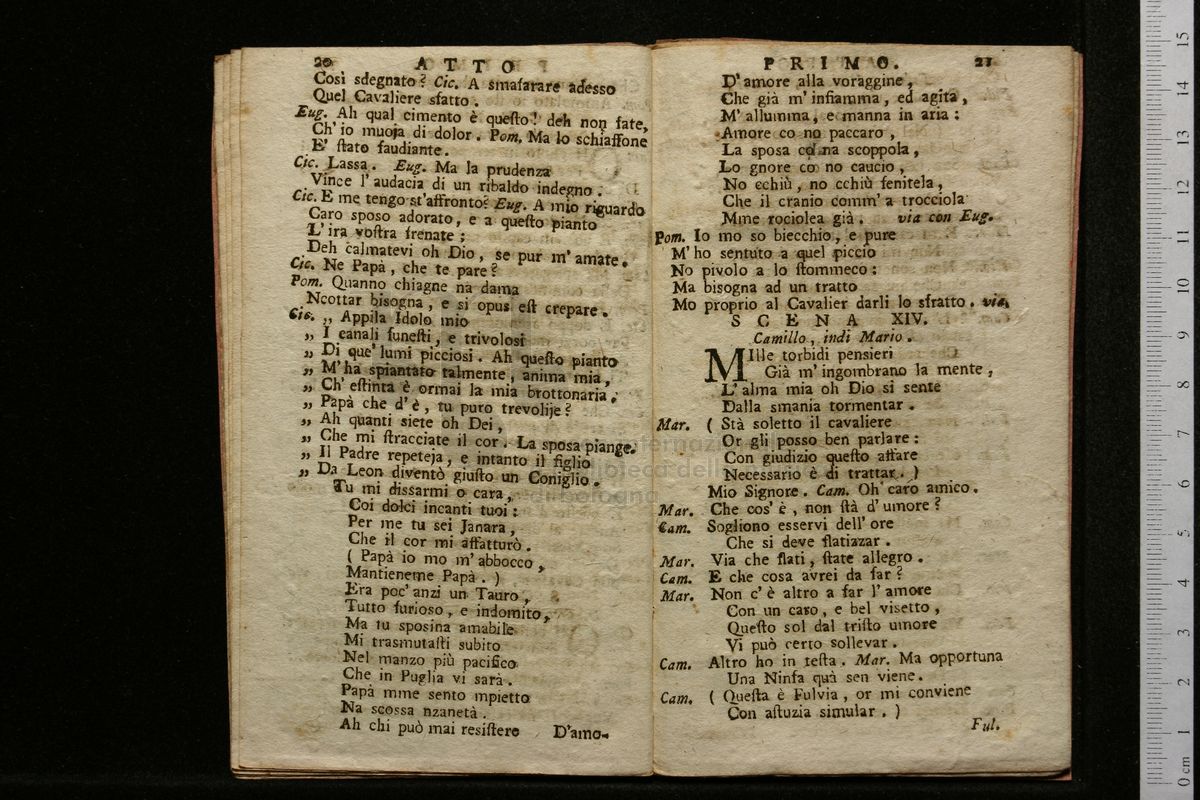 20 ATTO
Così sdegnato? Cic. A smafarare adesso
Quel Cavaliere sfatto.
Eug. Ah qual cimento è questo! deh non fate,
Ch' io muoja di dolor. Pom. Ma lo schiaffone
E' stato faudiante.
Cic. Lassa. Eug. Ma la prudenza
Vince l' audacia di un ribaldo indegno.
Cic. E me tengo st'affronto? Eug. A mio riguardo
Caro sposo adorato, e a questo pianto
L' ira vostra frenate;
Deh calmatevi oh Dio, se pur m' amate.
Cic. Ne Papà, che te pare?
Pom. Quanno chiagne na dama
Ncottar bisogna, e si opus est crepare.
Cic. „ Appila Idolo mio
„ I canali funesti, e trivolosi
„ Di que' lumi picciosi. Ah questo pianto
„ M' ha spiantato talmente, anima mia,
„ Ch' estinta è ormai la mia brottonaria.
„ Papà che d' è, tu puro trevolije?
„ Ah quanti siete oh Dei,
„ Che mi stracciate il cor. La sposa piange.
„ Il Padre repeteja, e intanto il figlio
„ Da Leon diventò giusto un Coniglio.
Tu mi dissarmi o cara,
Coi dolci incanti tuoi:
Per me tu sei Janara,
Che il cor mi affatturò.
( Papà io mo m' abbocco,
Mantieneme Papà. )
Era poc' anzi un Tauro,
Tutto furioso, e indomito,
Ma tu sposina amabile
Mi trasmutasti subito
Nel manzo più pacifico
Che in Puglia vi sarà.
Papà mme sento mpietto
Na scossa nzanetà.
Ah chi può mai resistere D'amo-
PRIMO. 21
D' amore alla voraggine,
Che già m' infiamma, ed agita,
M' allumma, e manna in aria:
Amore co no paccaro,
La sposa co na scoppola,
Lo gnore co no caucio,
No cchiù, no cchiù fenitela,
Che il cranio comm' a trocciola
Mme rociolea già. via con Eug.
Pom. Io mo so biecchio, e pure
M' ho sentuto a quel piccio
No pivolo a lo stommeco:
Ma bisogna ad un tratto
Mo proprio al Cavalier darli lo sfratto. via.
SCENA XIV.
Camillo, indi Mario.
MIlle torbidi pensieri
Già m' ingombrano la mente,
L' alma mia oh Dio si sente
Dalla smania tormentar.
Mar. ( Stà soletto il cavaliere
Or gli posso ben parlare:
Con giudizio questo affare
Necessario è di trattar. )
Mio Signore. Cam. Oh' caro amico.
Mar. Che cos' è, non stà d' umore?
Cam. Sogliono esservi dell' ore
Che si deve flatizzar.
Mar. Via che flati, state allegro.
Cam. E che cosa avrei da far?
Mar. Non c' è altro a far l' amore
Con un caro, e bel visetto,
Questo sol dal tristo umore
Vi può certo sollevar.
Cam. Altro ho in testa. Mar. Ma opportuna
Una Ninfa quà sen viene.
Cam. ( Questa è Fulvia, or mi conviene
Con astuzia simular. )
Ful.